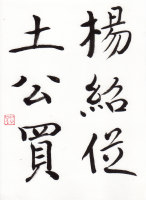 楊紹従
土公買